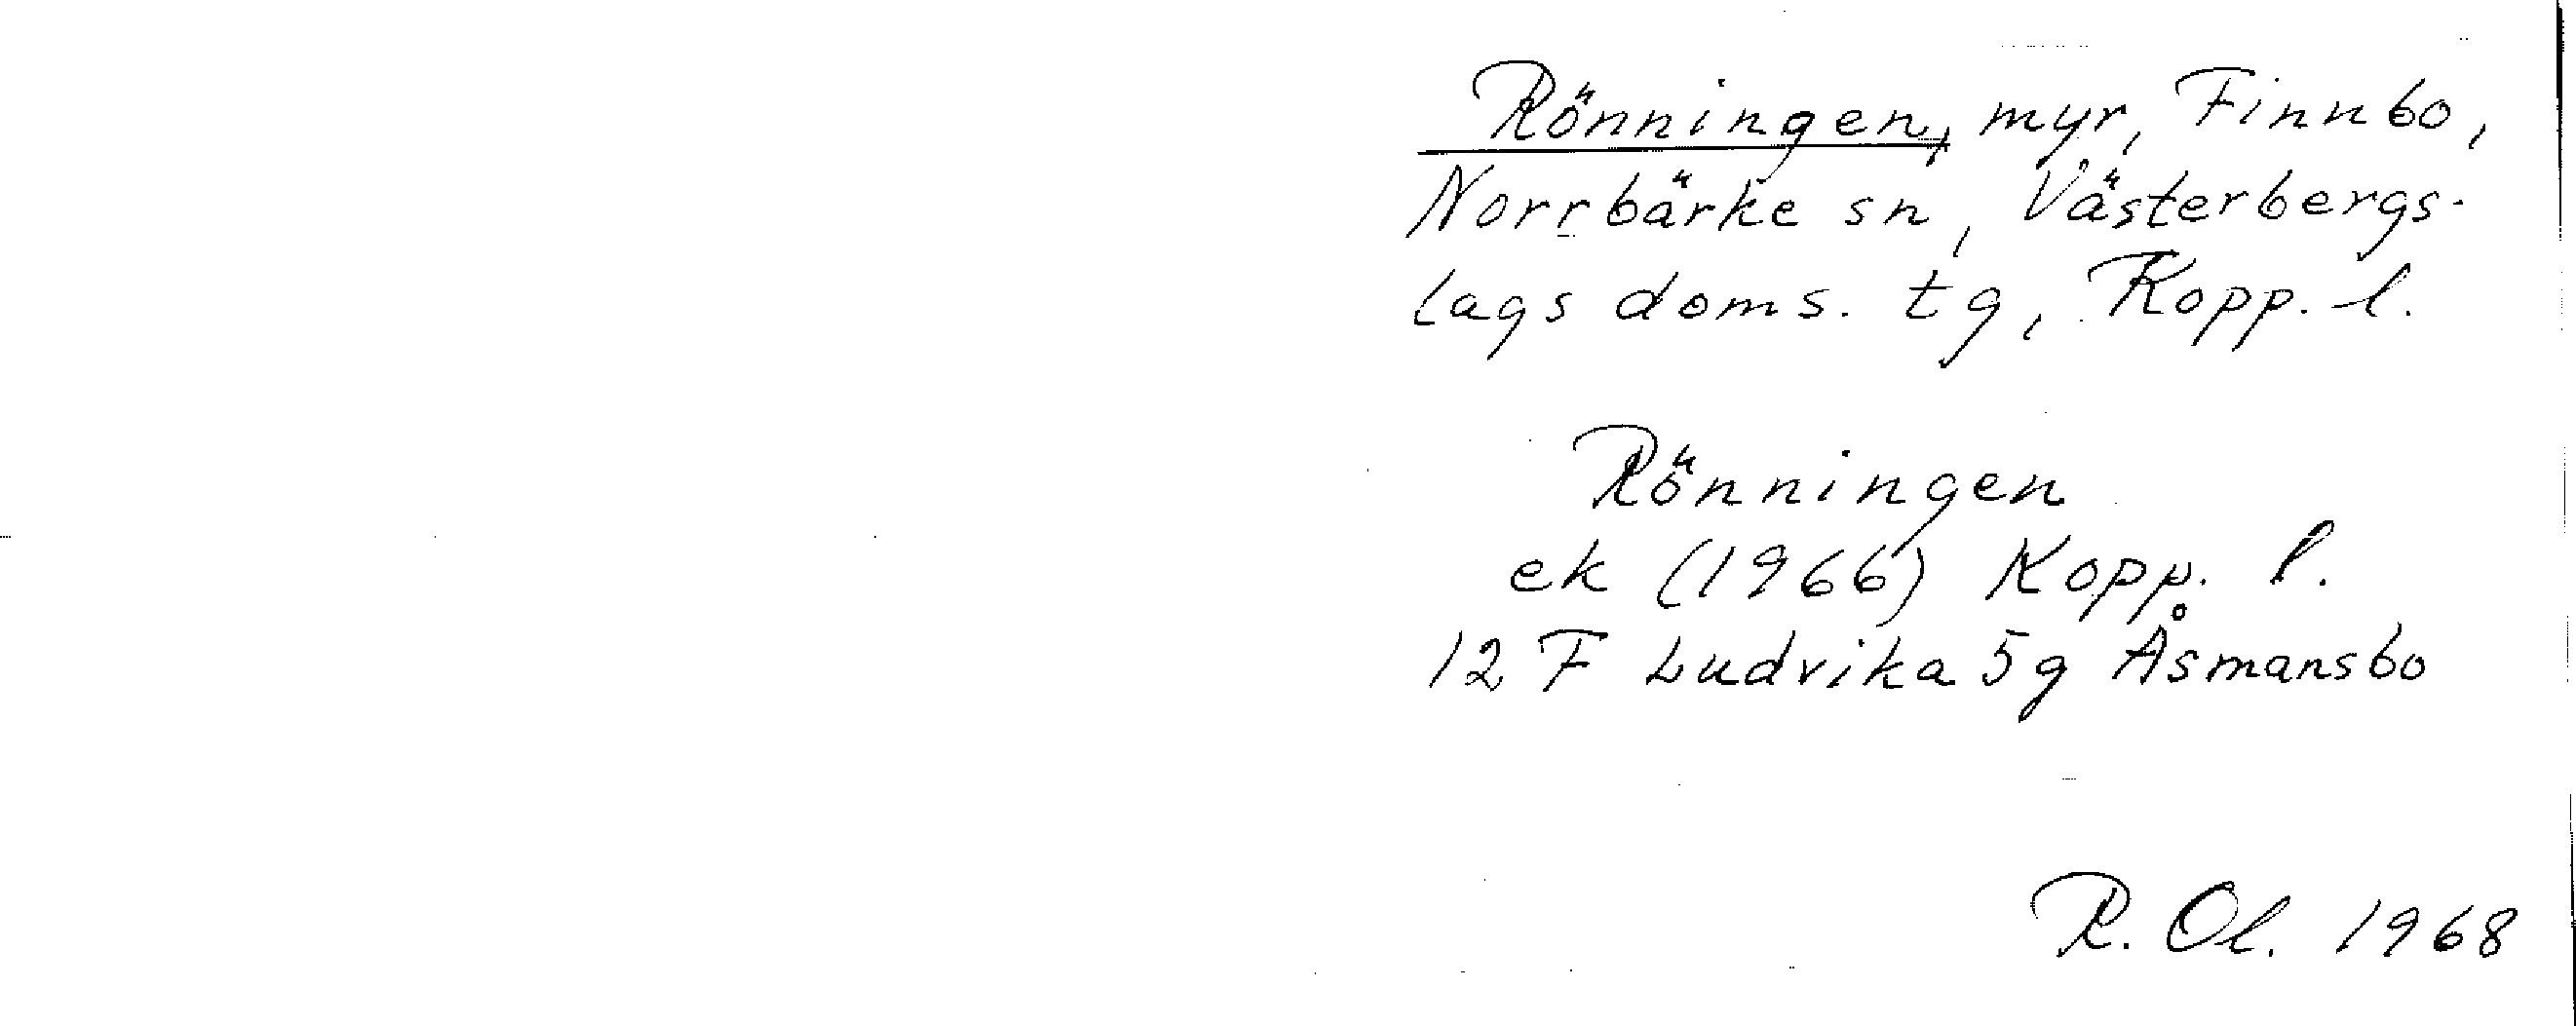 Rönningen, myr, Finnbo,
Norrbärke sn, Västerbergs-
lags doms. tg, Kopp. l.
Rönningen
ek (1966) Kopp. l.
12 F Ludvika 5g Åsmansbo
R. Ol. 1968